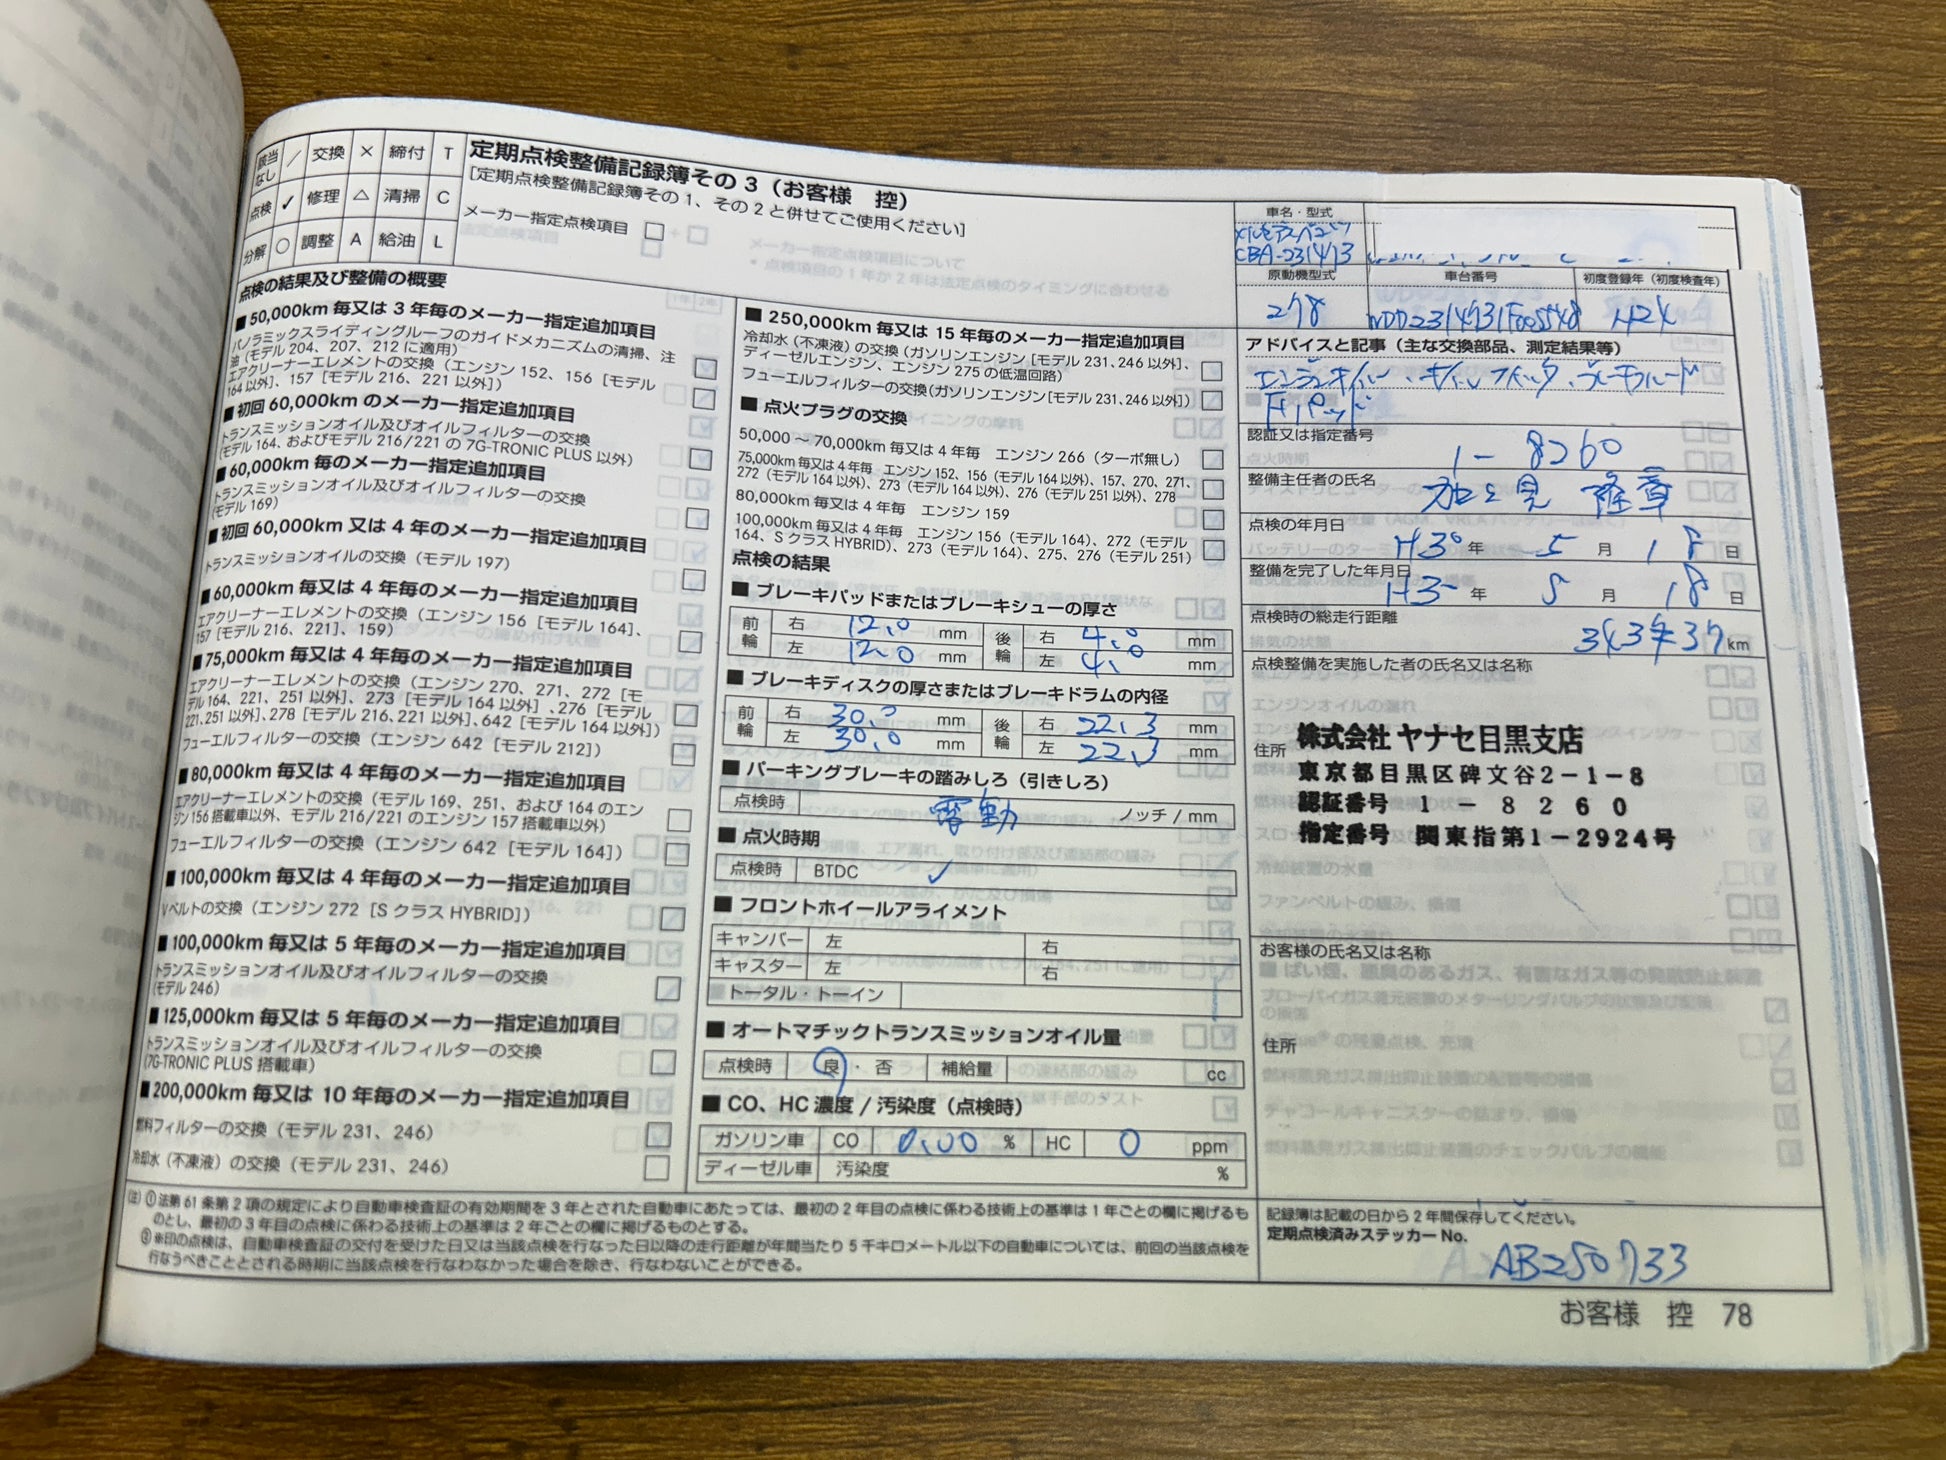 該当なし / 交換 × 締付 T
点検 ✓ 修理 △ 清掃 C
分解 ○ 調整 A 給油 L
定期点検整備記録簿その3（お客様　控）
［定期点検整備記録簿その1、その2と併せてご使用ください］
メーカー指定点検項目
点検の結果及び整備の概要
■50,000km毎又は3年毎のメーカー指定追加項目
パノラミックスライディングルーフのガイドメカニズムの清掃、注
油（モデル204、207、212に適用）
エアクリーナーエレメントの交換（エンジン152、156［モデル
164以外］、157［モデル216、221以外］）
■初回60,000kmのメーカー指定追加項目
トランスミッションオイル及びオイルフィルターの交換
（モデル164、およびモデル216/221の7G-TRONIC PLUS以外）
■60,000km毎のメーカー指定追加項目
トランスミッションオイル及びオイルフィルターの交換
（モデル169）
■初回60,000km又は4年のメーカー指定追加項目
トランスミッションオイルの交換（モデル197）
■60,000km毎又は4年毎のメーカー指定追加項目
エアクリーナーエレメントの交換（エンジン156［モデル164］、
157［モデル216、221］、159）
■75,000km毎又は4年毎のメーカー指定追加項目
エアクリーナーエレメントの交換（エンジン270、271、272［モ
デル164、221、251以外］、273［モデル164以外］、276［モデル
221、251以外］、278［モデル216、221以外］、642［モデル164以外］）
フューエルフィルターの交換（エンジン642［モデル212］）
■80,000km毎又は4年毎のメーカー指定追加項目
エアクリーナーエレメントの交換（モデル169、251、および164のエン
ジン156搭載車以外、モデル216/221のエンジン157搭載車以外）
フューエルフィルターの交換（エンジン642［モデル164］）
■100,000km毎又は4年毎のメーカー指定追加項目
Vベルトの交換（エンジン272［SクラスHYBRID］）
■100,000km毎又は5年毎のメーカー指定追加項目
トランスミッションオイル及びオイルフィルターの交換
（モデル246）
■125,000km毎又は5年毎のメーカー指定追加項目
トランスミッションオイル及びオイルフィルターの交換
（7G-TRONIC PLUS搭載車）
■200,000km毎又は10年毎のメーカー指定追加項目
燃料フィルターの交換（モデル231、246）
冷却水（不凍液）の交換（モデル231、246）
■250,000km毎又は15年毎のメーカー指定追加項目
冷却水（不凍液）の交換（ガソリンエンジン［モデル231、246以外］、
ディーゼルエンジン、エンジン275の低温回路）
フューエルフィルターの交換（ガソリンエンジン［モデル231、246以外］）
■点火プラグの交換
50,000～70,000km毎又は4年毎　エンジン266（ターボ無し）
75,000km毎又は4年毎　エンジン152、156（モデル164以外）、157、270、271、
272（モデル164以外）、273（モデル164以外）、276（モデル251以外）、278
80,000km毎又は4年毎　エンジン159
100,000km毎又は4年毎　エンジン156（モデル164）、272（モデル
164、SクラスHYBRID）、273（モデル164）、275、276（モデル251）
点検の結果
■ブレーキパッドまたはブレーキシューの厚さ
前輪 右 12.0 mm 後輪 右 4.0 mm
左 12.0 mm 左 4.0 mm
■ブレーキディスクの厚さまたはブレーキドラムの内径
前輪 右 30.0 mm 後輪 右 22.3 mm
左 30.0 mm 左 22.3 mm
■パーキングブレーキの踏みしろ（引きしろ）
点検時 電動 ノッチ / mm
■点火時期
点検時 BTDC ✓
■フロントホイールアライメント
キャンバー 左 右
キャスター 左 右
トータル・トーイン
■オートマチックトランスミッションオイル量
点検時 良・否 補給量 cc
■CO、HC濃度 / 汚染度（点検時）
ガソリン車 CO 0.00 % HC 0 ppm
ディーゼル車 汚染度 %
車名・型式
メルセデスベンツ
CBA-231473
原動機型式 車台番号 初度登録年（初度検査年）
278 WDD2314731F005548 H24
アドバイスと記事（主な交換部品、測定結果等）
エンジンオイル・オイルフィルタ・ブレーキフルード
Fパッド
認証又は指定番号
1-8260
整備主任者の氏名
点検の年月日
H30年 5月 18日
整備を完了した年月日
H30年 5月 18日
点検時の総走行距離
km
点検整備を実施した者の氏名又は名称
株式会社 ヤナセ目黒支店
住所
東京都目黒区碑文谷2-1-8
認証番号 1-8260
指定番号 関東指第1-2924号
お客様の氏名又は名称
住所
記録簿は記載の日から2年間保存してください。
定期点検済みステッカーNo.
AB250733
（注）①法第61条第2項の規定により自動車検査証の有効期間を3年とされた自動車にあたっては、最初の2年目の点検に係わる技術上の基準は1年ごとの欄に掲げるも
のとし、最初の3年目の点検に係わる技術上の基準は2年ごとの欄に掲げるものとする。
②※印の点検は、自動車検査証の交付を受けた日又は当該点検を行なった日以降の走行距離が年間当たり5千キロメートル以下の自動車については、前回の当該点検を
行なうべきこととされる時期に当該点検を行なわなかった場合を除き、行なわないことができる。
お客様　控　78